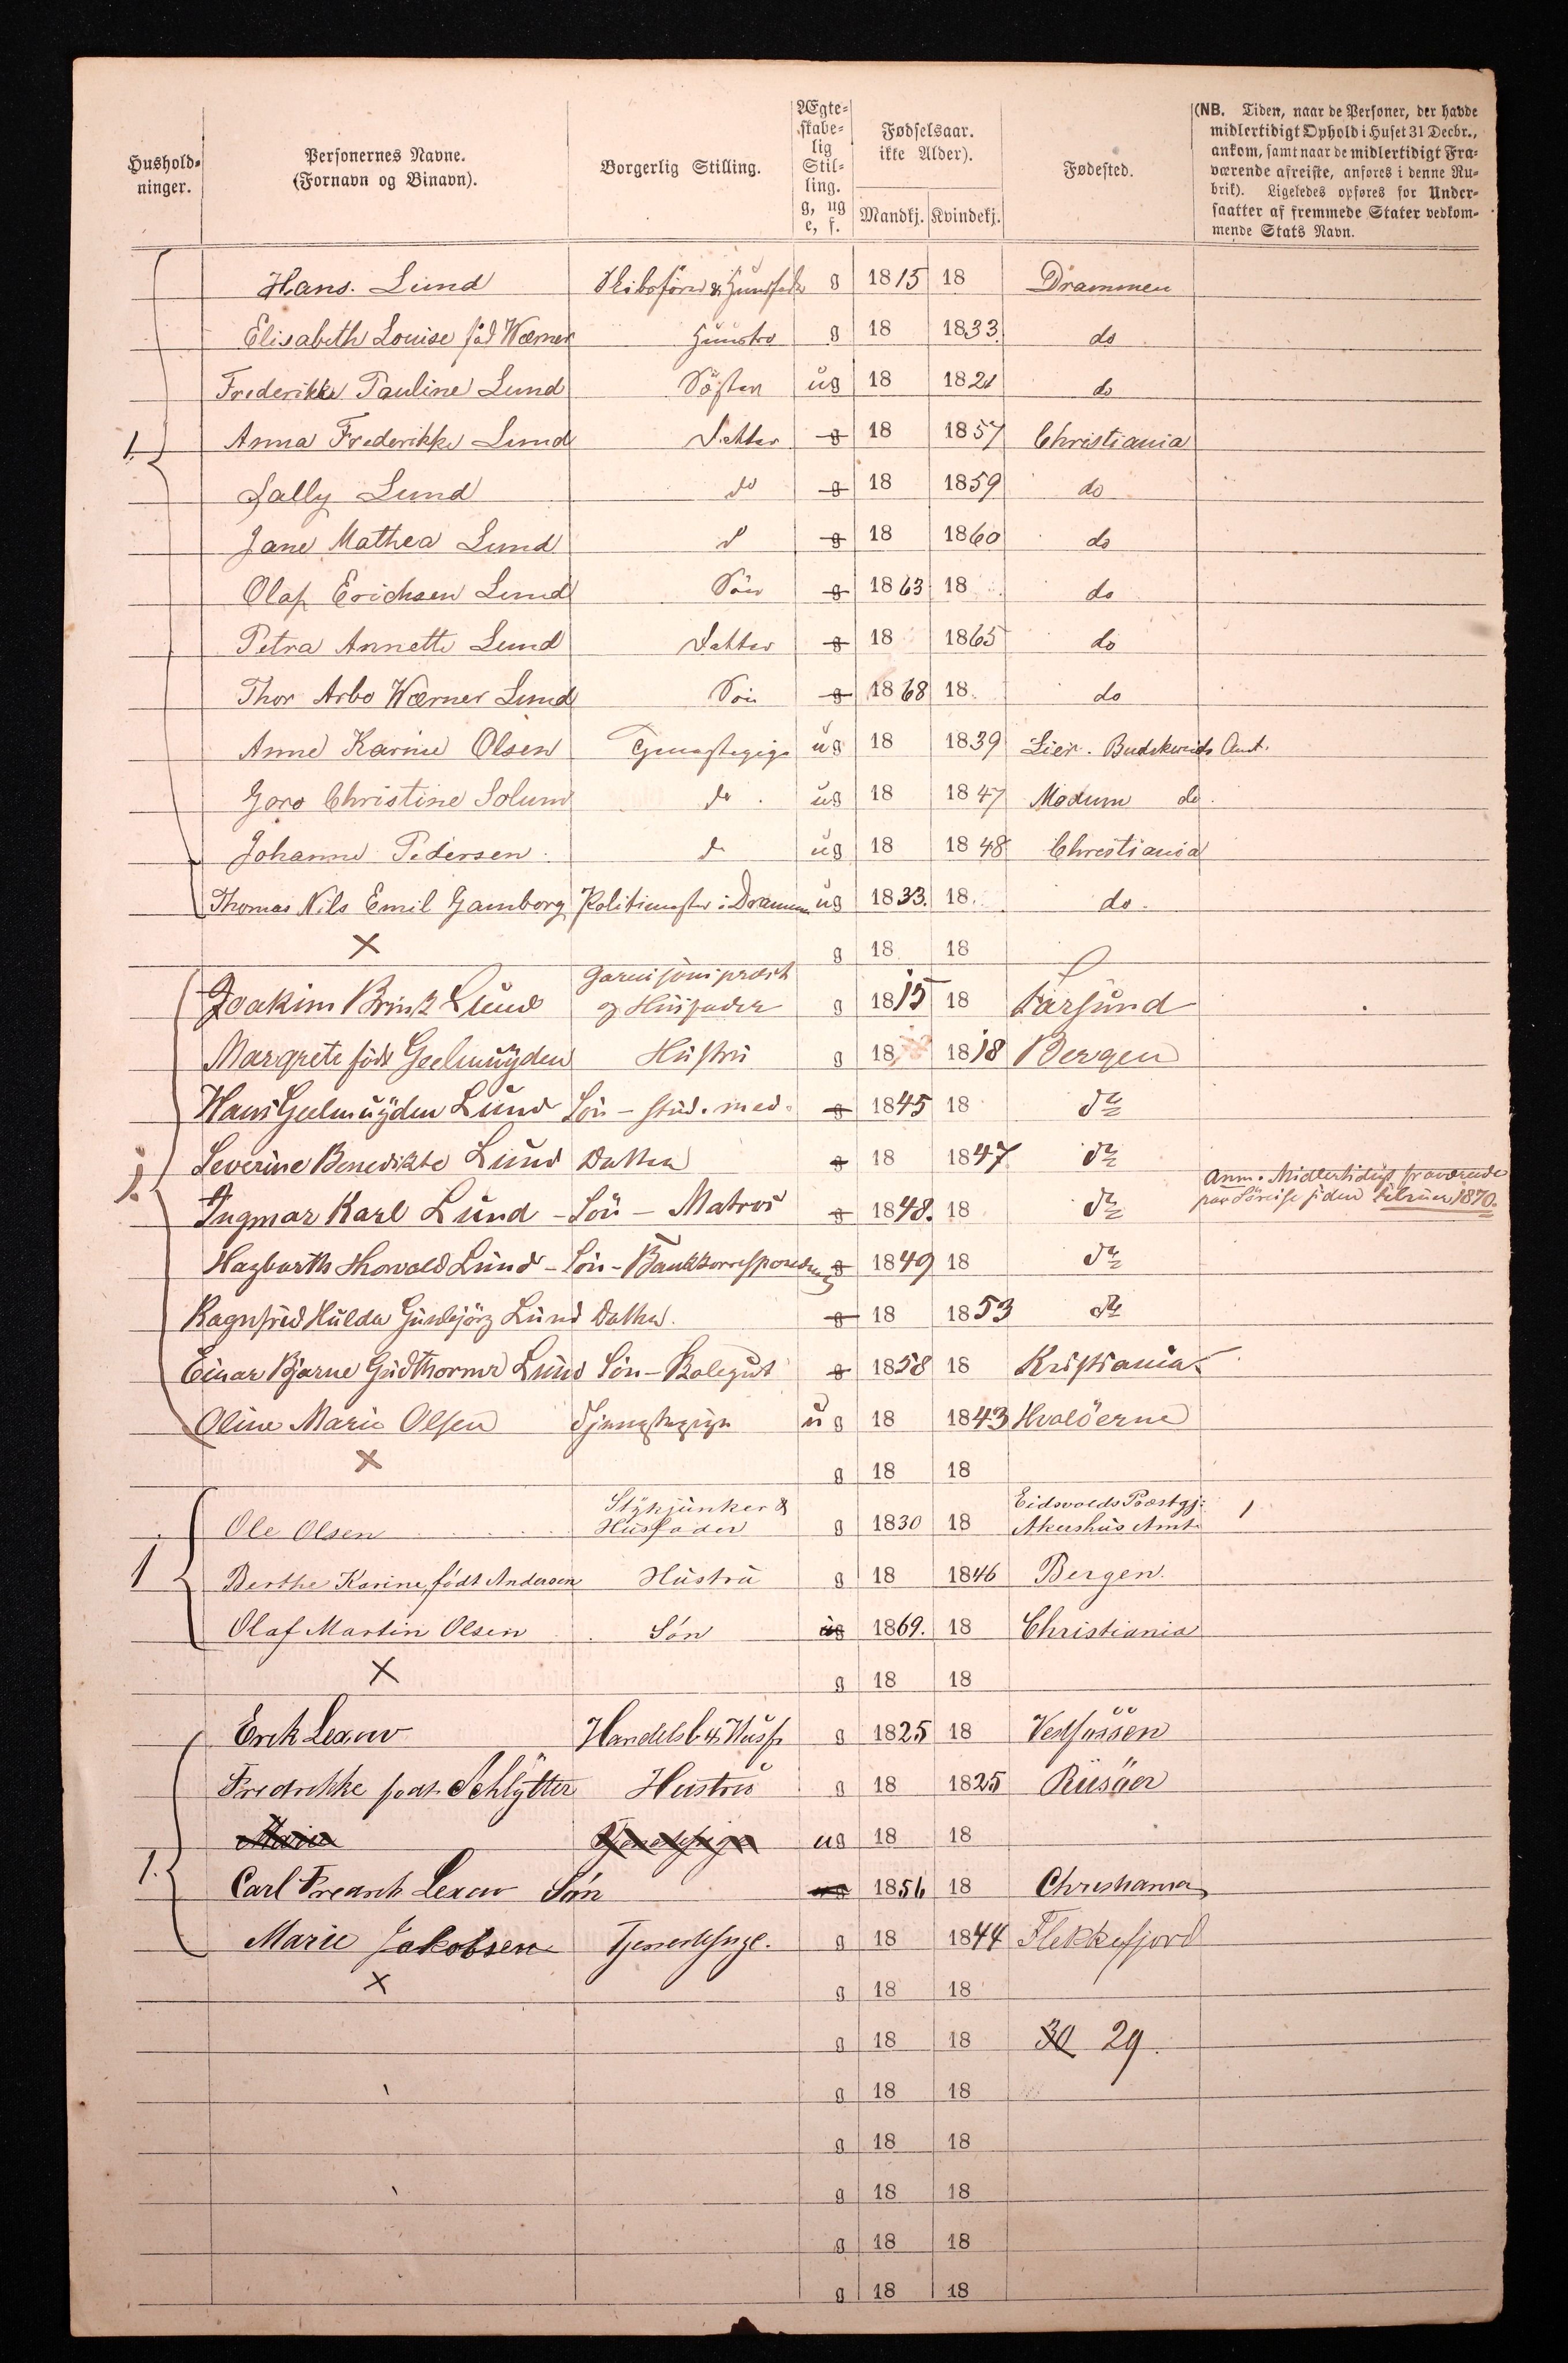 Hushold-
ninger.
Personernes Navne.
(Fornavn og Binavn).
Borgerlig Stilling.
Ægte-
skabe-
lig
Stil-
ling.
g, ug
e, f.
Fødselsaar.
ikke Alder).
Mandkj. Kvindekj.
Fødested.
(NB. Tiden, naar de Personer, der havde
midlertidigt Ophold i Huset 31 Decbr.,
ankom, samt naar de midlertidigt Fra-
værende afreiste, anføres i denne Ru-
brik). Ligeledes opføres for Under-
saatter af fremmede Stater vedkom-
mende Stats Navn.
Hans. Lund Skibsfører & Huusfader g 1815 18 Drammen
Elisabeth Louise fød Wærner Huustro g 18 1833. do
Frederikke Pauline Lund Søster ug 18 1821 do
1. Anna Frederikke Lund Datter g 18 1857 Christiania
Sally Lund do g 18 1859 do
Jane Mathea Lund d g 18 1860 do
Olaf Erichsen Lund Søn g 1863 18 do
Petra Annette Lund Datter g 18 1865 do
Thor Arbo Wærner Lund Søn g 1868 18 do
Anne Karine Olsen Tjenestepige ug 18 1839 Lier. Buskeruds Amt.
Goro Christine Solum do. ug 18 1847 Modum do.
Johanne Pedersen. d ug 18 1848 Christiania
Thomas Nils Emil Gamborg Politimester i Drammen ug 1833. 18 do.
X g 18 18
Garnisonsprest
Joakim Brink Lund og Husfader g 1815 18 Farsund
Margrete född Geelmuyden Hustru g 18 1818 Bergen
Hans Geelmuyden Lund Sön - stud. med. g 1845 18 do
Severine Benedikte Lund Datter g 18 1847 do
Anm. Midlertidigt fraværende
1. Ingmar Karl Lund - Sön - Matros g 1848. 18 do paa Söreise siden februar 1870.
Hagbarth Thorvald Lund - Sön - Bankkorrespondent g 1849 18 do
Ragnfrid Hulda Gunbjörg Lund Datter. g 18 1853 do
Einar Bjarne Gudthormr Lund Sön - Skolegut g 1858 18 Kristiania
Oline Marie Olsen Tjenestepige ug 18 1843 Hvalöerne
X g 18 18
Stykjunker & Eidsvolds Præstgj.
Ole Olsen Husfader g 1830 18 Akershus Amt. 1
1 Berthe Karine, født Andersen Hustru g 18 1846 Bergen.
Olaf Martin Olsen Søn ug 1869. 18 Christiania
X g 18 18
Erik Lexow Handelsb. & Husf. g 1825 18 Vestfossen
Fredrikke født Schlytter Hustru g 18 1825 Risøer
Marie Tjenestepige ug 18 18
1. Carl Fredrik Lexow Søn ug 1856 18 Christiania
Marie Jakobsen Tjenestepige. g 18 1844 Flekkefjord
X g 18 18
g 18 18 30 29.
g 18 18
g 18 18
g 18 18
g 18 18
g 18 18